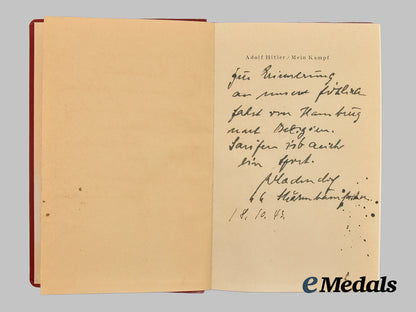 Adolf Hitler / Mein Kampf
Zur Erinnerung
an unsere fröhliche
Fahrt von Hamburg
nach Belgien.
Saufen ist auch
ein Sport.
18.10.42.
eMedals